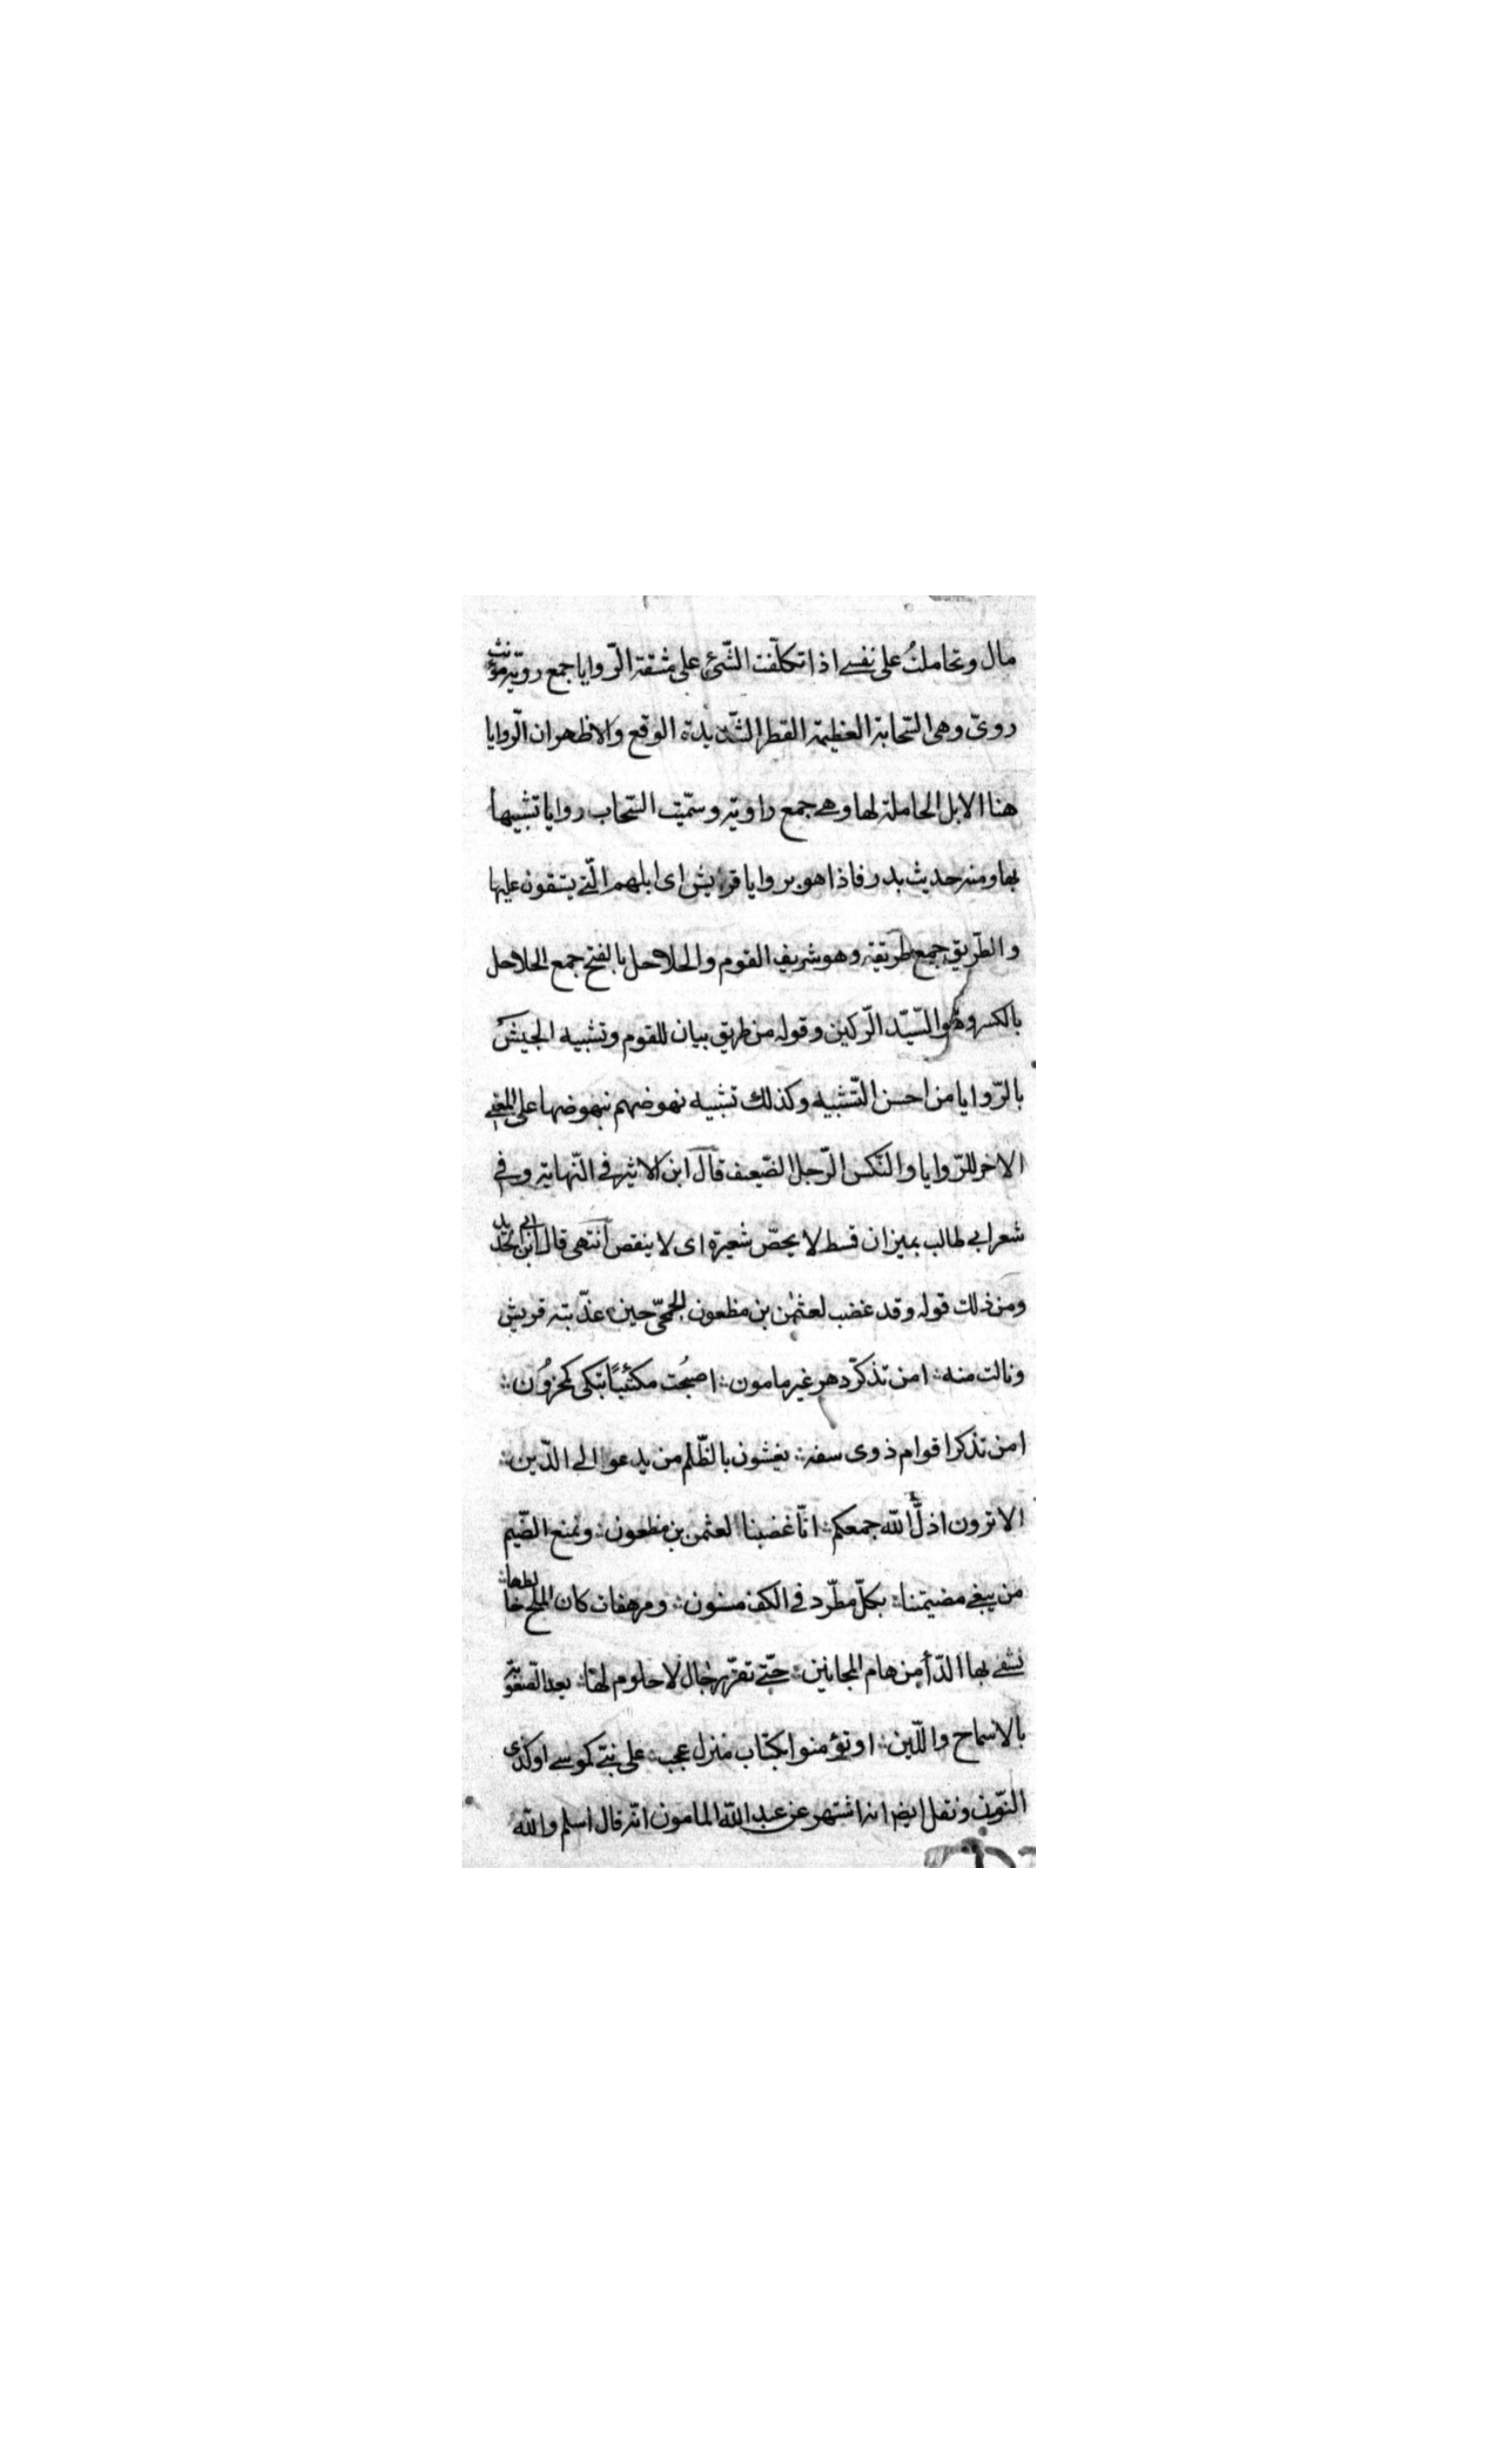 مال وتحاملتُ على نفسے اذا تكلّفت الشّئ على مشقة الرّوايا جمع رويّة مؤنث
روىّ وهى السّحابة العظيمة القطر الشّديدة الوقع والاظهر ان الرّوايا
هنا الابل الحاملة لها وهے جمع راوية وسمّيت السّحاب روايا تشبيها
بها ومنه حديث بدر فاذا هو بروايا قريش اى ابلهم الّتے يستقون عليها
والطّريق جمع طريقة وهو شريف القوم والحلاحل بالفتح جمع الحلاحل
بالكسر وهو السّيّد الرّكين وقوله من طريق بيان للقوم وتشبيه الجيش
بالرّوايا من احسن التّشبيه وكذلك تشبيه نهوضهم بنهوضها على المعنے
الاخر للرّوايا والنّكس الرّجل الضّعيف قال ابن الاثير فى النّهاية وفے
شعر ابى طالب بميزان قسط لا يحصّ شعيرة اى لا ينقص انتهى قال ابن ابى الحديد
ومن ذلك قوله وقد غضب لعثمٰن بن مظعون الجمحىّ حين عذّبته قريش
ونالت منه ؞ امن تذكّر دهر غير مامون ؞ اصبحُت مكتئبًا تبكى كمحزوُن ؞
امن تذكر اقوام ذوى سفه ؞ يغشون بالظّلم من يدعو الے الدّين ؞
الا ترون اذلَّ الله جمعكم ؞ انّا غضبنا لعثمن بن مظعون ؞ ونمنع الضّيم
من يبغے مضيمتنا ؞ بكلّ مطّرد فے الكف مسنون ؞ ومرهفات كان الملح خالطها ؞
نشفے بها الدّأ من هام المجانين ؞ حتّے تقرّ رجال لا حلوم لها ؞ بعد الصّعوبة
بالاسماح واللّين ؞ او تؤمنوا بكتاب منزل عجب ؞ على نبىّ كموسے او كذى
النّون ونقل ايضا انه اشتهر عن عبد الله المامون انّه قال اسلم والله